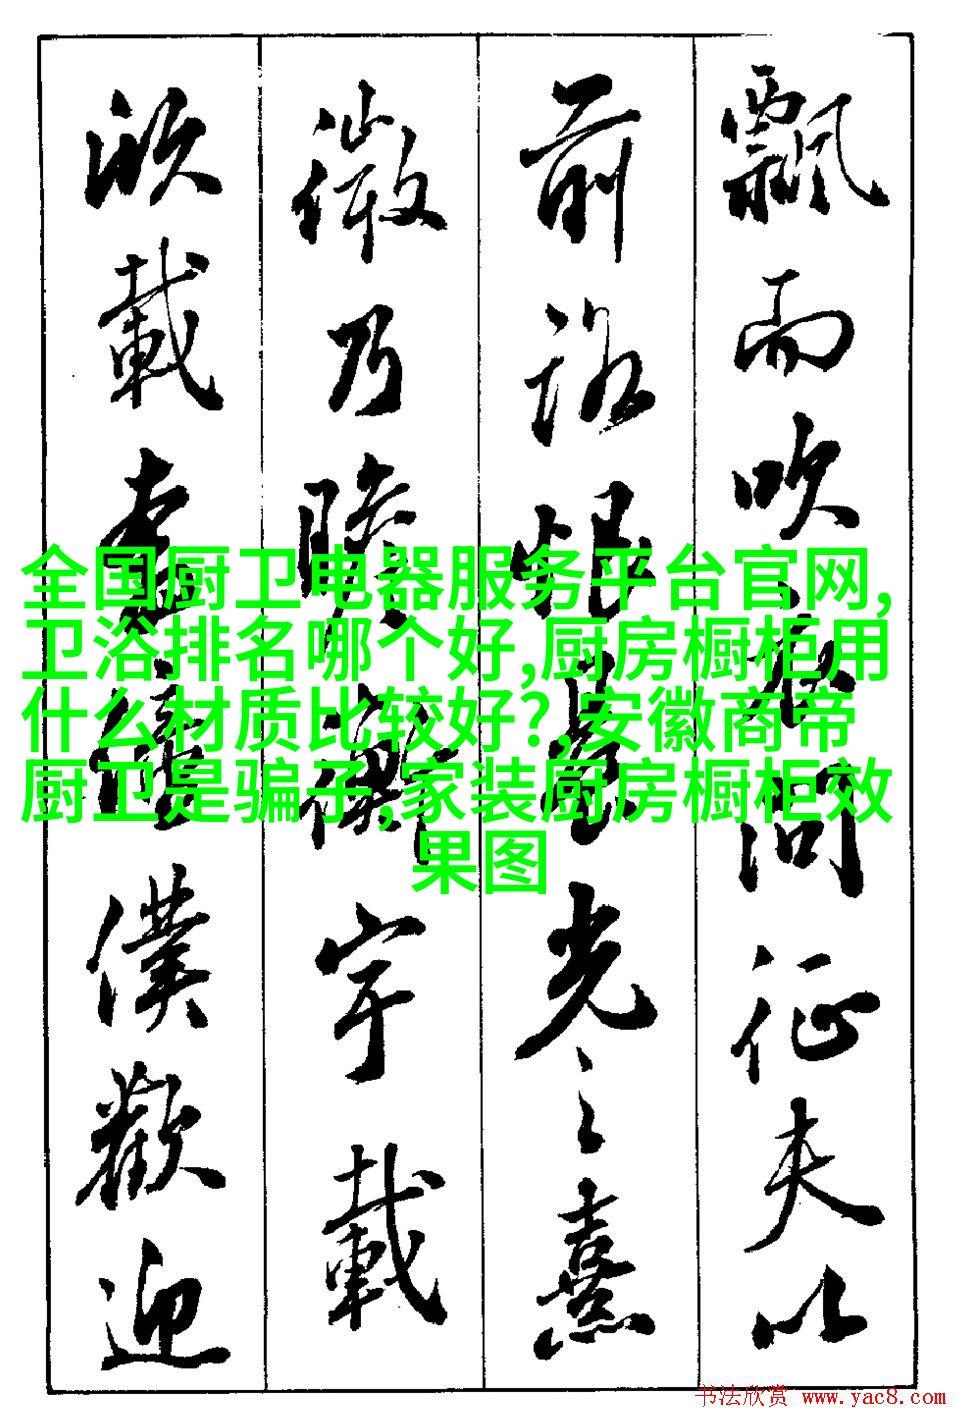 飘而吹衣问征夫以
前路恨晨光之熹
微乃瞻衡宇载
欣载奔僮僕歡迎
全国厨卫电器服务平台官网,
卫浴排名哪个好,厨房橱柜用
什么材质比较好?,安徽商帝
厨卫是骗子,家装厨房橱柜效
果图
书法欣赏 www.yac8.com